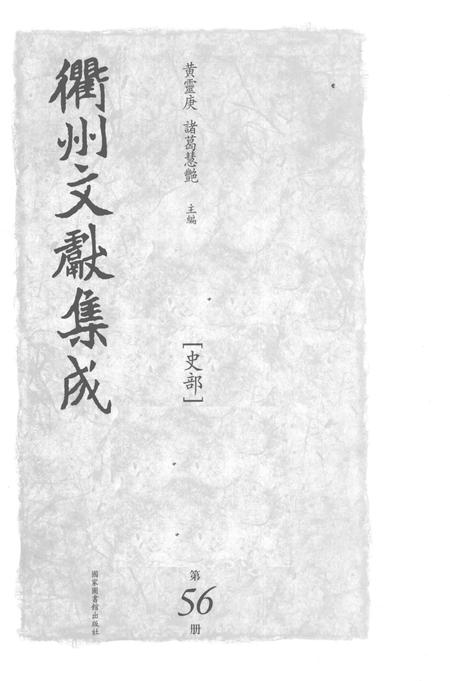 黃靈庚 諸葛慧艷 主編
衢州文獻集成
[史部]
第56册
國家圖書館出版社